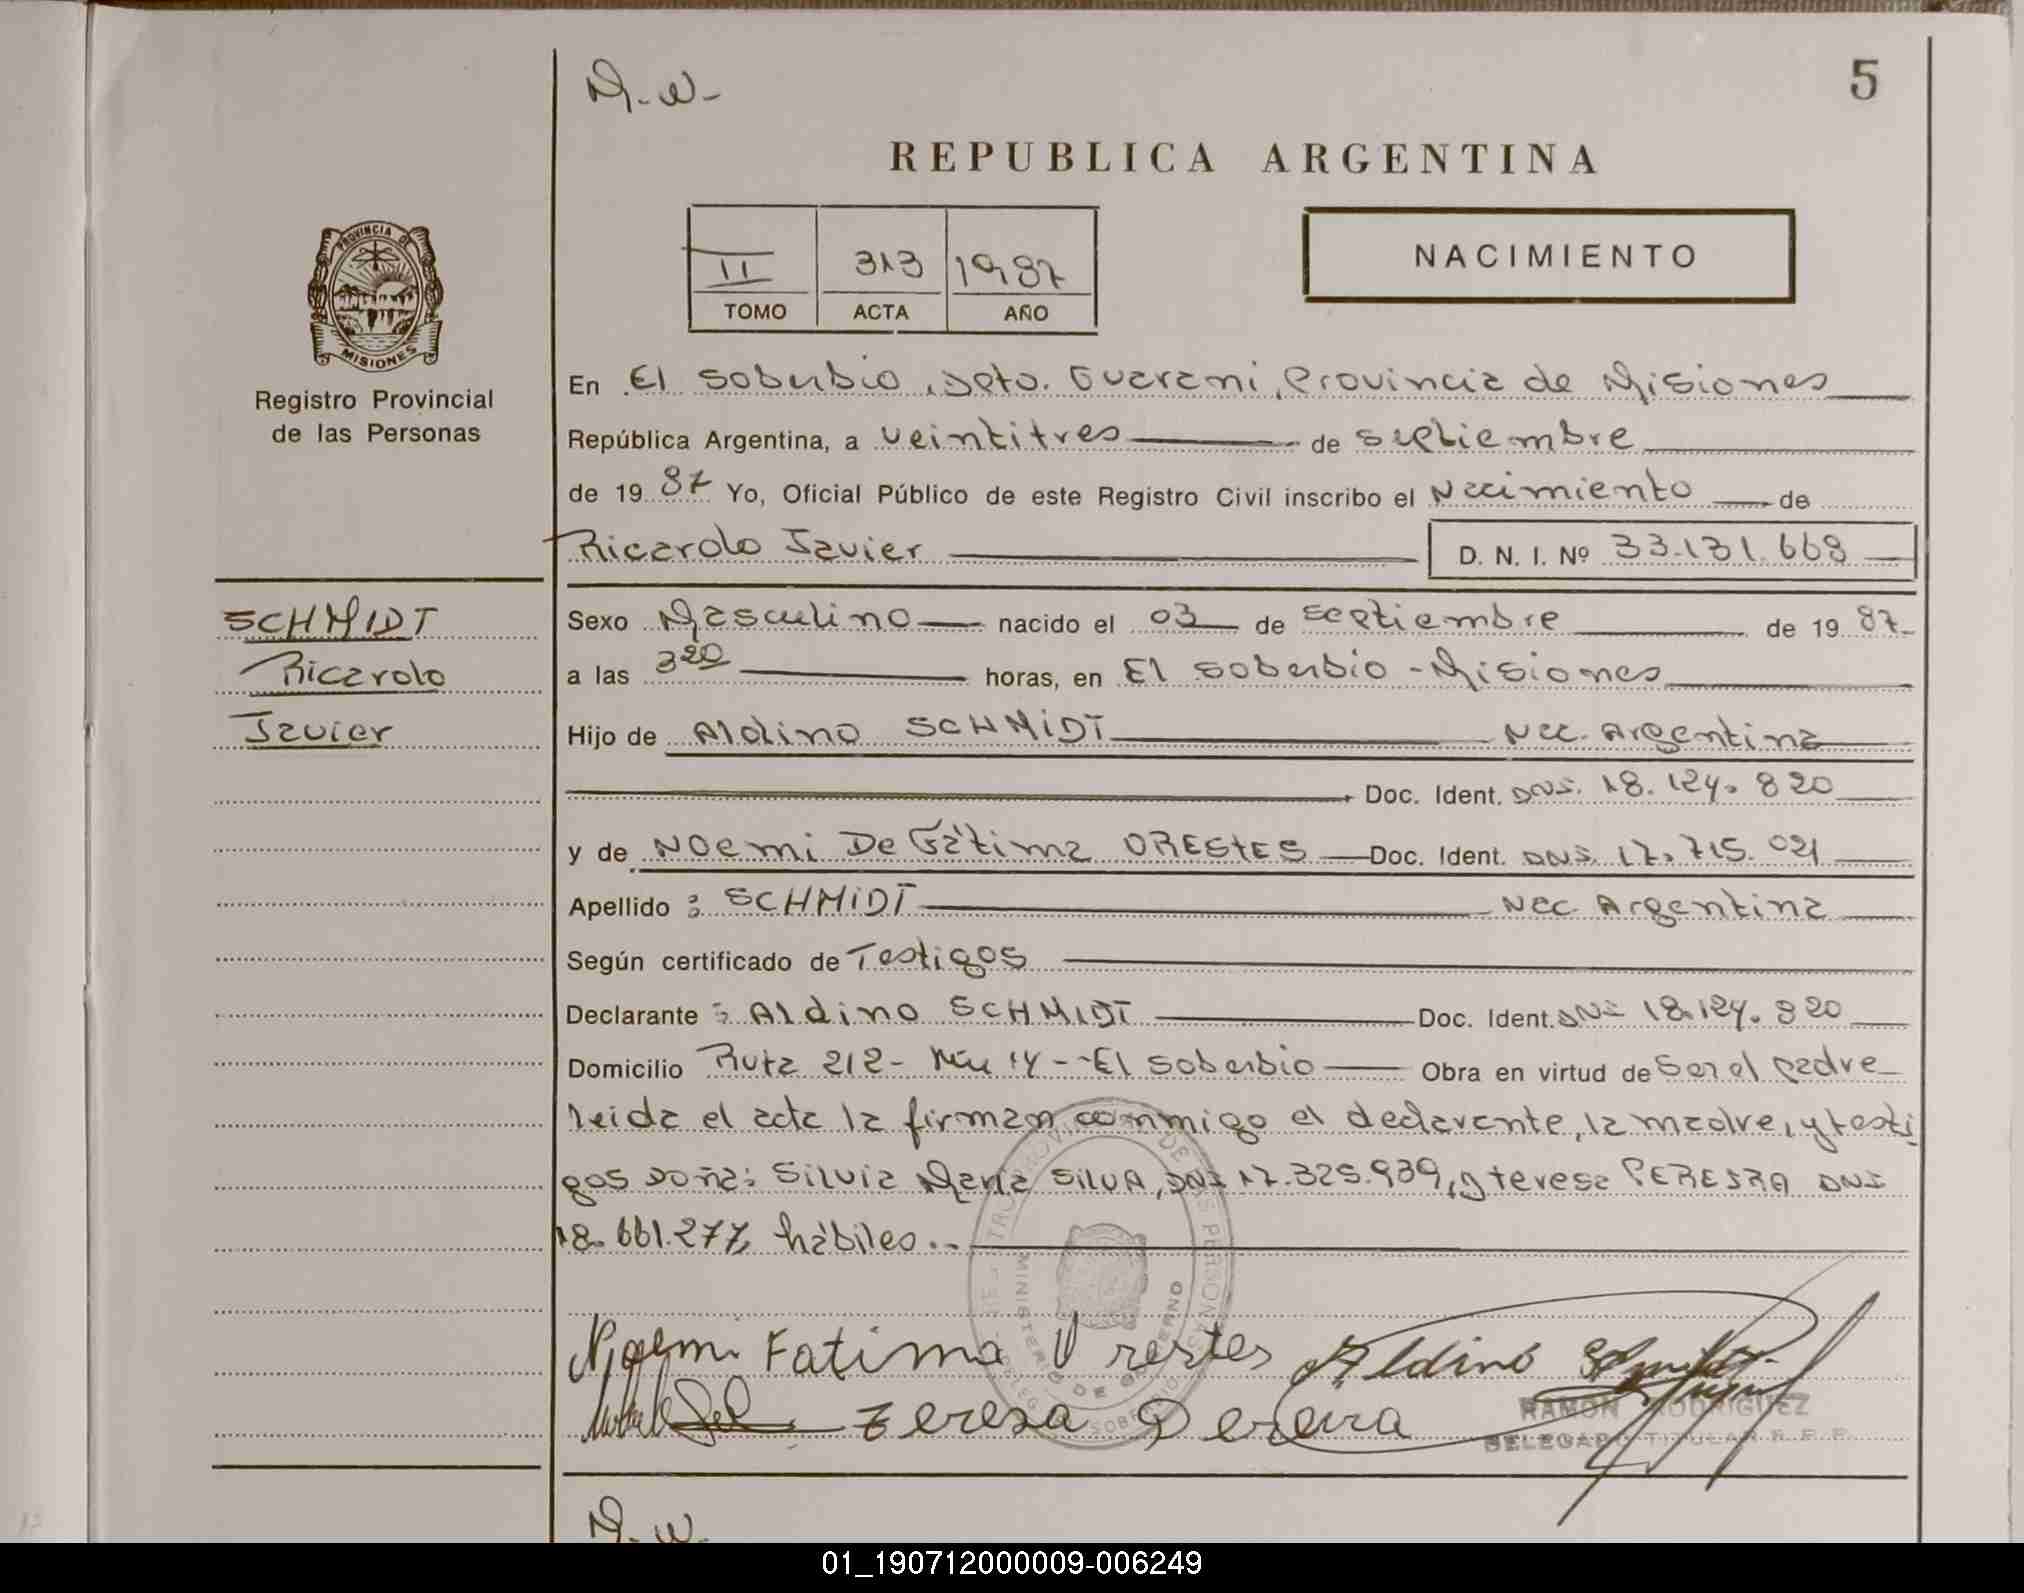 M.W.-
5
REPUBLICA ARGENTINA
II 313 1987
TOMO ACTA AÑO
NACIMIENTO
PROVINCIA DE
MISIONES
Registro Provincial
de las Personas
En El Soberbio, Dpto. Guarani, Provincia de Misiones
República Argentina, a veintitres de septiembre
de 1987 Yo, Oficial Público de este Registro Civil inscribo el Nacimiento de
Ricardo Javier D. N. I. Nº 33.131.668
SCHMIDT
Ricardo
Javier
Sexo Masculino nacido el 03 de septiembre de 1987.
a las 3 20 horas, en El Soberbio - Misiones
Hijo de Aldino SCHMIDT Nac. Argentina
Doc. Ident. DNI. 18.124.820
y de Noemi De Fátima ORESTES Doc. Ident. DNI. 17.715.021
Apellido : SCHMIDT Nac. Argentina
Según certificado de Testigos
Declarante : Aldino SCHMIDT Doc. Ident. DNI 18.124.820
Domicilio Ruta 212 - Km 14 - El Soberbio Obra en virtud de Ser el padre
leida el acta la firman conmigo el declarante, la madre, y testi
gos Doña: Silvia Maria SILVA, DNI 17.325.939, y teresa PEREIRA DNI
18.661.277, hábiles.-
Noemi Fatima Orestes Aldino Schmidt
Teresa Pereira
RAMON RODRIGUEZ
DELEGADO TITULAR R. P. P.
MINISTERIO DE GOBIERNO
M.W.
01_190712000009-006249